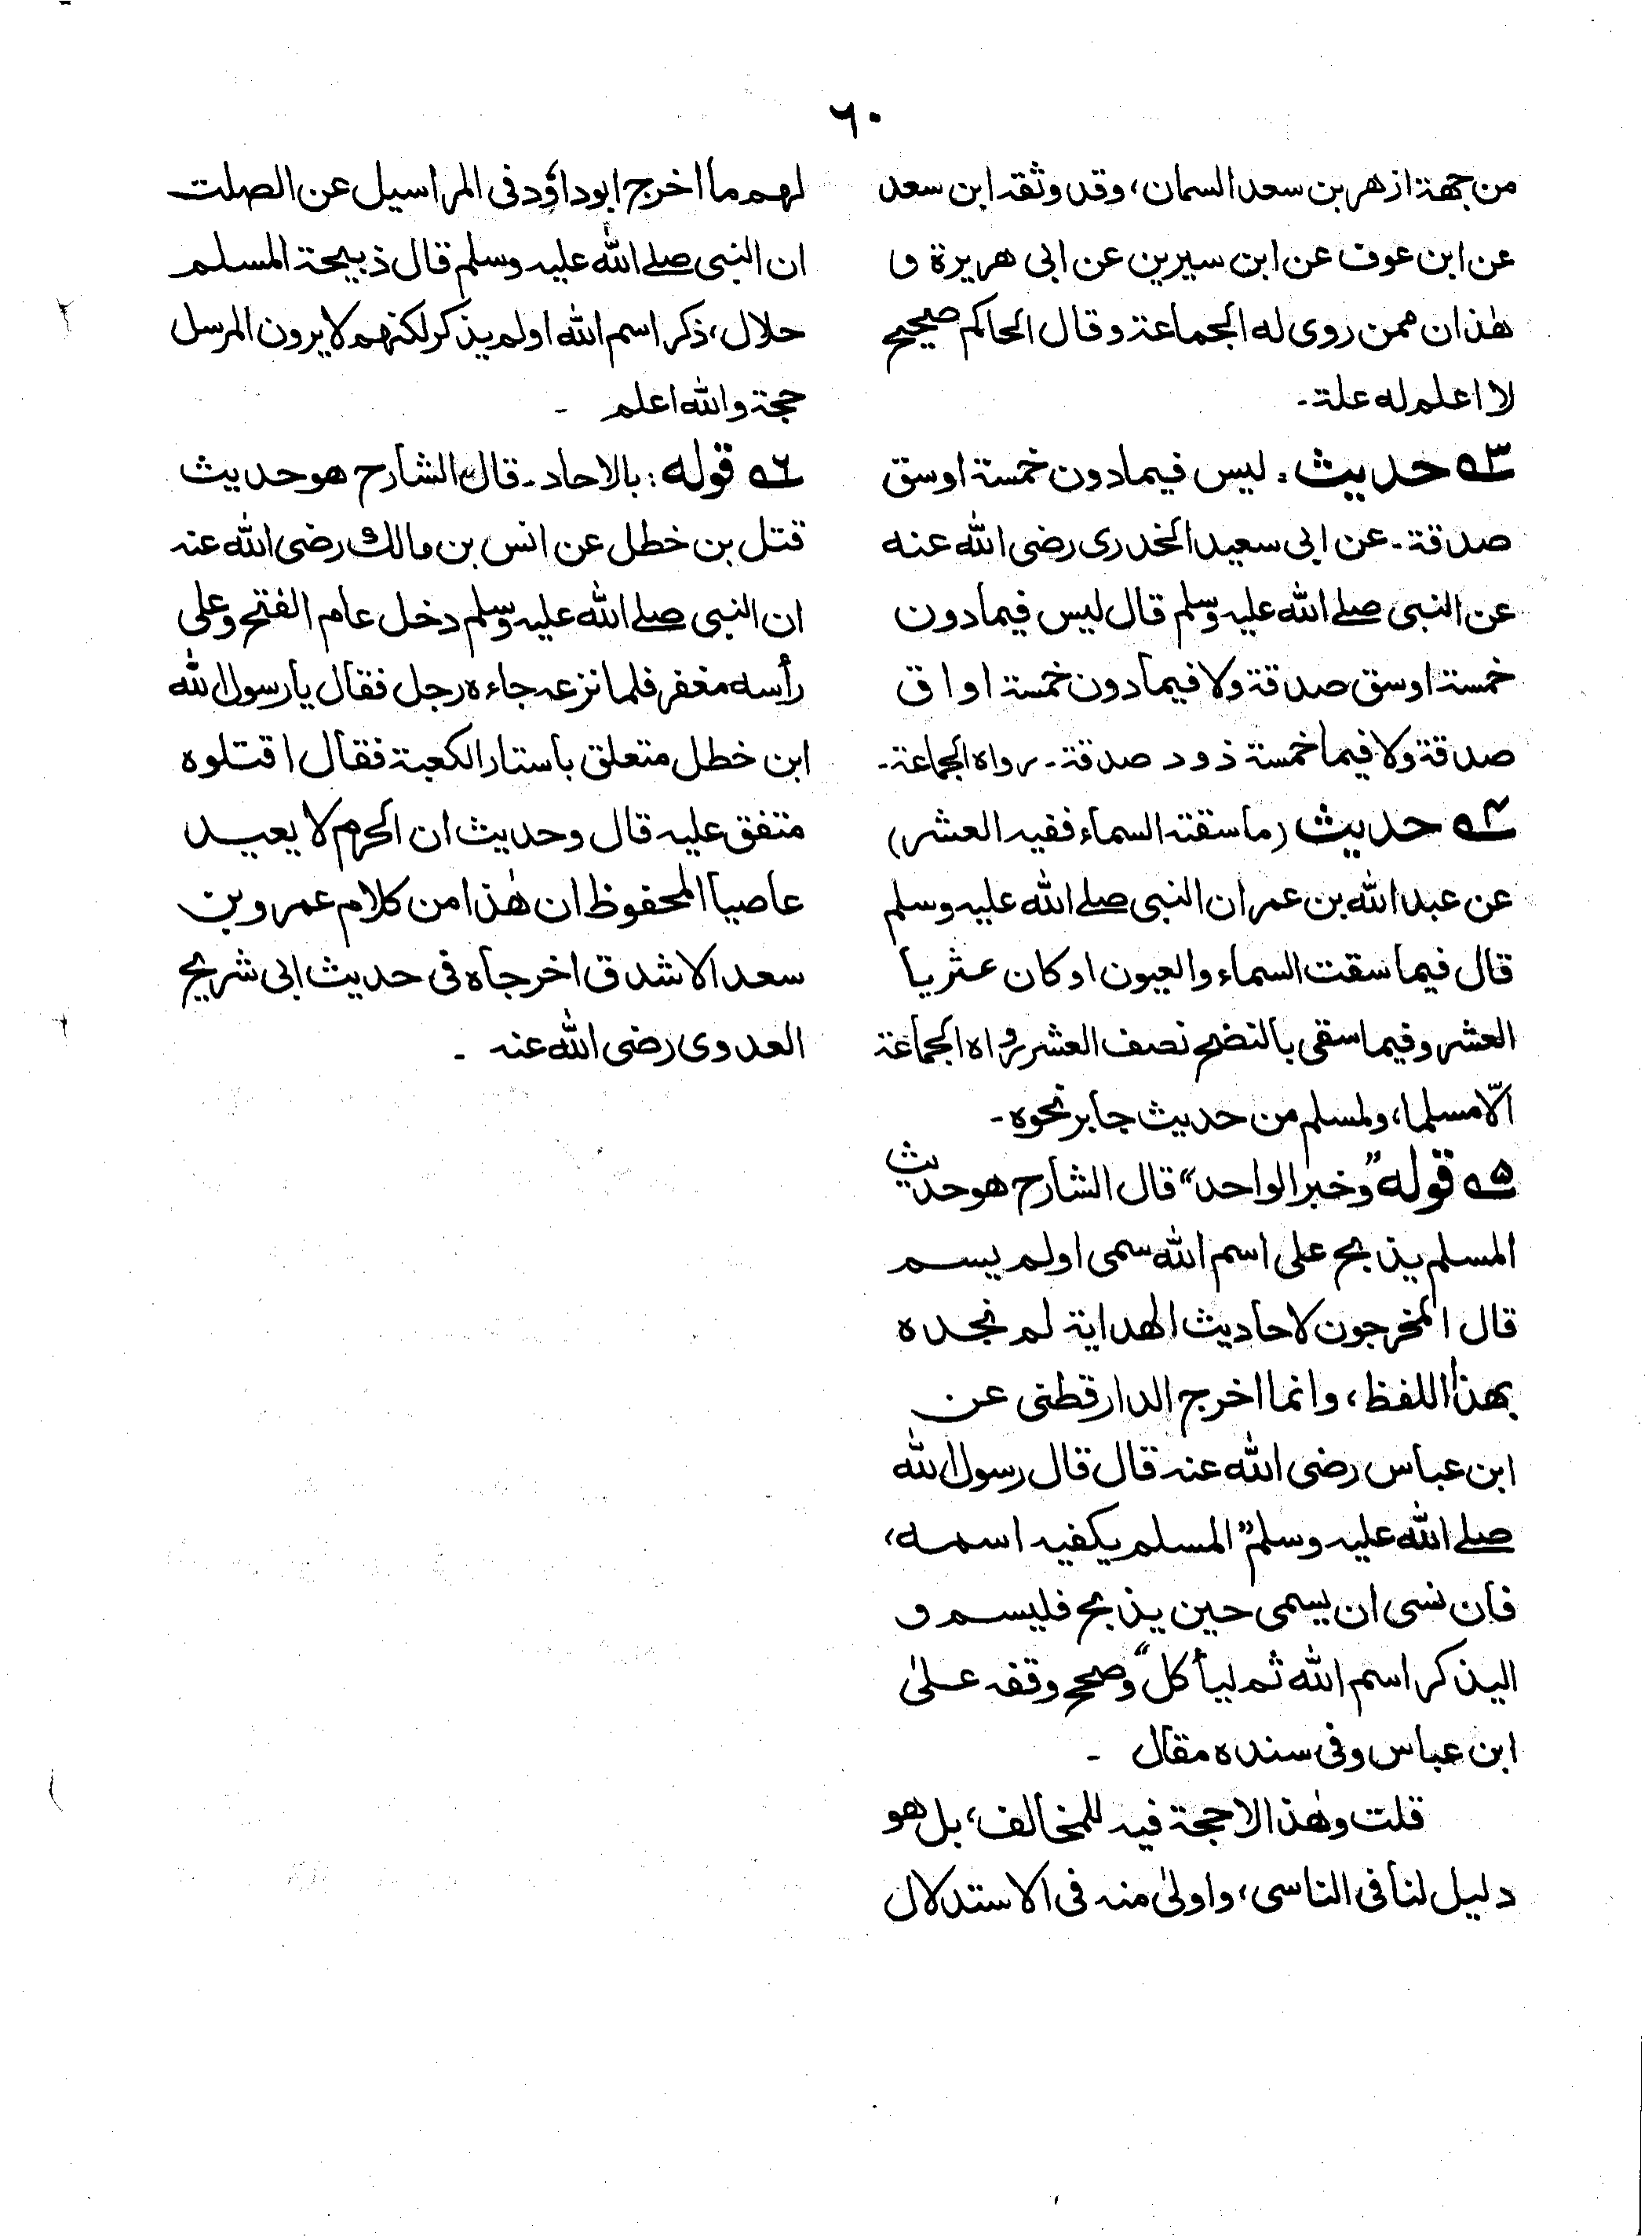 ٦٠
من جهة ازهر بن سعد السمان، وقد وثقه ابن سعد
عن ابن عوف عن ابن سيرين عن ابى هريرة و
هٰذان ممن روى له الجماعة وقال الحاكم صحيح
لا اعلم له علة۔
۵۳ حديث: ليس فيما دون خمسة اوسق
صدقة۔ عن ابى سعيد الخدرى رضى الله عنه
عن النبى صلے الله عليه وسلم قال ليس فيما دون
خمسة اوسق صدقة ولا فيما دون خمسة اواق
صدقة ولا فيما خمسة ذود صدقة۔ رواه الجماعة۔
۵۴ حديث (ما سقته السماء ففيه العشر)
عن عبد الله بن عمر ان النبى صلے الله عليه وسلم
قال فيما سقت السماء والعيون او كان عثريا
العشر وفيما سقى بالنضح نصف العشر رواه الجماعة
الّا مسلما، ولمسلم من حديث جابر نحوه۔
۵۵ قوله "وخبر الواحد" قال الشارح هو حديث
المسلم يذبح على اسم الله سمى اولم يسم
قال المخرجون لاحاديث الهداية لم نجده
بهذا اللفظ، وانما اخرج الدار قطنى عن
ابن عباس رضى الله عنه قال قال رسول الله
صلے الله عليه وسلم "المسلم يكفيه اسمه،
فان نسى ان يسمى حين يذبح فليسم و
اليذكر اسم الله ثم ليأكل" وصحح وقفه علىٰ
ابن عباس وفى سنده مقال ۔
قلت وهٰذا لاحجة فيه للمخالف، بل هو
دليل لنا فى الناسى، واولىٰ منه فى الاستدلال
لهم ما اخرج ابوداؤد فى المراسيل عن الصلت
ان النبى صلے الله عليه وسلم قال ذبيحة المسلم
حلال، ذكر اسم الله اولم يذكر لكنهم لا يرون المرسل
حجة والله اعلم ۔
۵۶ قوله: بالاحاد۔ قال الشارح هو حديث
قتل بن خطل عن انس بن مالك رضى الله عنه
ان النبى صلے الله عليه وسلم دخل عام الفتح وعلى
رأسه مغفر فلما نزعه جاءه رجل فقال يا رسول الله
ابن خطل متعلق باستار الكعبة فقال اقتلوه
متفق عليه قال وحديث ان الحرم لا يعيد
عاصيا المحفوظ ان هٰذا من كلام عمرو بن
سعد الاشدق اخرجاه فى حديث ابى شريح
العدوى رضى الله عنه ۔